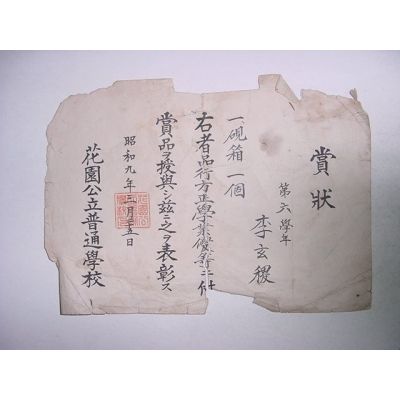 賞狀
第六學年
李玄稷
一、硯箱 一個
右者品行方正學業優等ニ付
賞品ヲ授與シ茲ニ之ヲ表彰ス
昭和九年三月二五日
花園公立普通學校